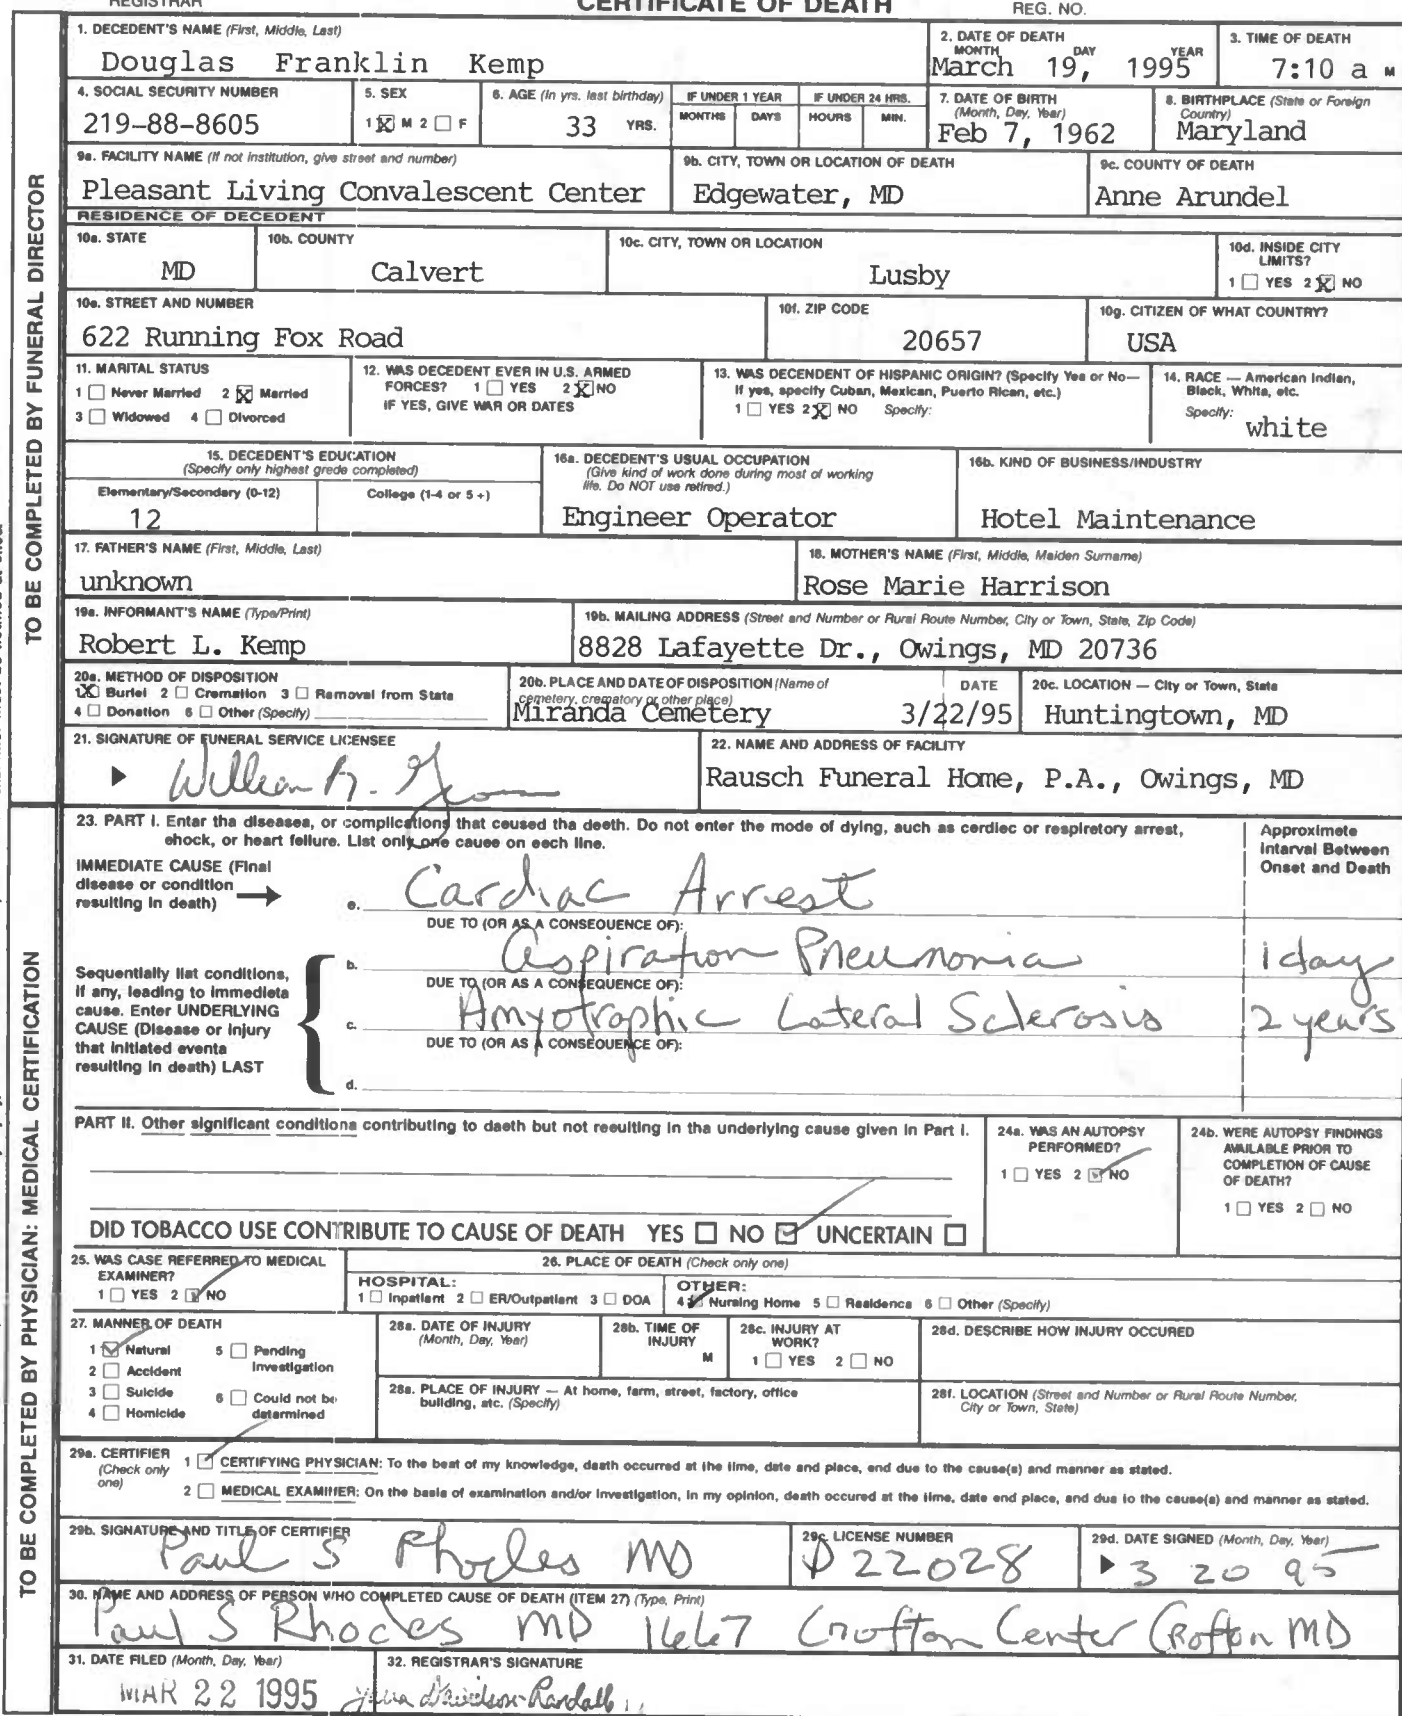 REGISTRAR CERTIFICATE OF DEATH REG. NO.
1. DECEDENT'S NAME (First, Middle, Last)
Douglas Franklin Kemp
2. DATE OF DEATH
MONTH DAY YEAR
March 19, 1995
3. TIME OF DEATH
7:10 a M
4. SOCIAL SECURITY NUMBER
219-88-8605
5. SEX
1 ☒ M 2 ☐ F
6. AGE (In yrs. last birthday)
33 YRS.
IF UNDER 1 YEAR
MONTHS DAYS
IF UNDER 24 HRS.
HOURS MIN.
7. DATE OF BIRTH
(Month, Day, Year)
Feb 7, 1962
8. BIRTHPLACE (State or Foreign
Country)
Maryland
9a. FACILITY NAME (If not institution, give street and number)
Pleasant Living Convalescent Center
9b. CITY, TOWN OR LOCATION OF DEATH
Edgewater, MD
9c. COUNTY OF DEATH
Anne Arundel
RESIDENCE OF DECEDENT
10a. STATE
MD
10b. COUNTY
Calvert
10c. CITY, TOWN OR LOCATION
Lusby
10d. INSIDE CITY
LIMITS?
1 ☐ YES 2 ☒ NO
10e. STREET AND NUMBER
622 Running Fox Road
10f. ZIP CODE
20657
10g. CITIZEN OF WHAT COUNTRY?
USA
11. MARITAL STATUS
1 ☐ Never Married 2 ☒ Married
3 ☐ Widowed 4 ☐ Divorced
12. WAS DECEDENT EVER IN U.S. ARMED
FORCES? 1 ☐ YES 2 ☒ NO
IF YES, GIVE WAR OR DATES
13. WAS DECENDENT OF HISPANIC ORIGIN? (Specify Yes or No—
If yes, specify Cuban, Mexican, Puerto Rican, etc.)
1 ☐ YES 2 ☒ NO Specify:
14. RACE — American Indian,
Black, White, etc.
Specify:
white
15. DECEDENT'S EDUCATION
(Specify only highest grade completed)
Elementary/Secondary (0-12) College (1-4 or 5+)
12
16a. DECEDENT'S USUAL OCCUPATION
(Give kind of work done during most of working
life. Do NOT use retired.)
Engineer Operator
16b. KIND OF BUSINESS/INDUSTRY
Hotel Maintenance
17. FATHER'S NAME (First, Middle, Last)
unknown
18. MOTHER'S NAME (First, Middle, Maiden Surname)
Rose Marie Harrison
19a. INFORMANT'S NAME (Type/Print)
Robert L. Kemp
19b. MAILING ADDRESS (Street and Number or Rural Route Number, City or Town, State, Zip Code)
8828 Lafayette Dr., Owings, MD 20736
20a. METHOD OF DISPOSITION
1 ☒ Burial 2 ☐ Cremation 3 ☐ Removal from State
4 ☐ Donation 6 ☐ Other (Specify)
20b. PLACE AND DATE OF DISPOSITION (Name of
cemetery, crematory or other place)
DATE
Miranda Cemetery 3/22/95
20c. LOCATION — City or Town, State
Huntingtown, MD
21. SIGNATURE OF FUNERAL SERVICE LICENSEE
William
22. NAME AND ADDRESS OF FACILITY
Rausch Funeral Home, P.A., Owings, MD
TO BE COMPLETED BY FUNERAL DIRECTOR
23. PART I. Enter the diseases, or complications that caused the death. Do not enter the mode of dying, such as cardiac or respiratory arrest,
shock, or heart failure. List only one cause on each line.
Approximate
Interval Between
Onset and Death
IMMEDIATE CAUSE (Final
disease or condition
resulting in death) →
a. Cardiac Arrest
DUE TO (OR AS A CONSEQUENCE OF):
b. Aspiration Pneumonia 1 day
DUE TO (OR AS A CONSEQUENCE OF):
c. Amyotrophic Lateral Sclerosis 2 years
DUE TO (OR AS A CONSEQUENCE OF):
d.
Sequentially list conditions,
if any, leading to immediate
cause. Enter UNDERLYING
CAUSE (Disease or injury
that initiated events
resulting in death) LAST
PART II. Other significant conditions contributing to death but not resulting in the underlying cause given in Part I.
24a. WAS AN AUTOPSY
PERFORMED?
1 ☐ YES 2 ☑ NO
24b. WERE AUTOPSY FINDINGS
AVAILABLE PRIOR TO
COMPLETION OF CAUSE
OF DEATH?
1 ☐ YES 2 ☐ NO
DID TOBACCO USE CONTRIBUTE TO CAUSE OF DEATH YES ☐ NO ☑ UNCERTAIN ☐
25. WAS CASE REFERRED TO MEDICAL
EXAMINER?
1 ☐ YES 2 ☑ NO
26. PLACE OF DEATH (Check only one)
HOSPITAL:
1 ☐ Inpatient 2 ☐ ER/Outpatient 3 ☐ DOA
OTHER:
4 ☑ Nursing Home 5 ☐ Residence 6 ☐ Other (Specify)
27. MANNER OF DEATH
1 ☑ Natural 5 ☐ Pending
2 ☐ Accident Investigation
3 ☐ Suicide 6 ☐ Could not be
4 ☐ Homicide determined
28a. DATE OF INJURY
(Month, Day, Year)
28b. TIME OF
INJURY
M
28c. INJURY AT
WORK?
1 ☐ YES 2 ☐ NO
28d. DESCRIBE HOW INJURY OCCURED
28e. PLACE OF INJURY — At home, farm, street, factory, office
building, etc. (Specify)
28f. LOCATION (Street and Number or Rural Route Number,
City or Town, State)
29a. CERTIFIER
(Check only
one)
1 ☑ CERTIFYING PHYSICIAN: To the best of my knowledge, death occurred at the time, date and place, and due to the cause(s) and manner as stated.
2 ☐ MEDICAL EXAMINER: On the basis of examination and/or investigation, in my opinion, death occured at the time, date and place, and due to the cause(s) and manner as stated.
29b. SIGNATURE AND TITLE OF CERTIFIER
Paul S Rhodes MD
29c. LICENSE NUMBER
D22028
29d. DATE SIGNED (Month, Day, Year)
3 20 95
30. NAME AND ADDRESS OF PERSON WHO COMPLETED CAUSE OF DEATH (ITEM 27) (Type, Print)
Paul S Rhodes MD 1667 Crofton Center Crofton MD
31. DATE FILED (Month, Day, Year)
MAR 22 1995
32. REGISTRAR'S SIGNATURE
Davidson-Randall
TO BE COMPLETED BY PHYSICIAN: MEDICAL CERTIFICATION